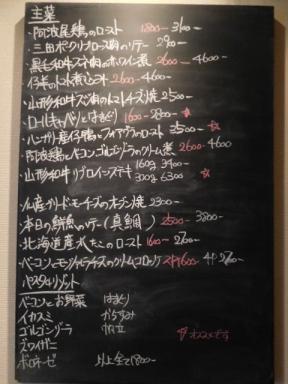 主菜
・阿波尾鶏のロースト 1800- 3100-
・三田ポークリブロース肉のソテー 2900-
・黒毛和牛スネ肉の赤ワイン煮 2600- 4600-
・仔羊のトマト煮込み 2600- 4600-
・山形和牛ズネ肉のトマトチーズ焼 2500-
・ロールキャベツとはまぐり 1600- 2800- ☆
・ハンガリー産仔鴨とフォアグラのロースト 3500- ☆
・阿波尾鶏とベーコンゴルゴンゾーラのクリーム煮 2600- 4600
・山形和牛リブロインステーキ 160g 3400-
300g 6300 ☆
・グリーンオリーブとチーズのオーブン焼 2300-
・本日の鮮魚のソテー(真鯛) 2500- 3800-
・北海道産水たこのロースト 1600- 2700-
・ベーコンとモッツァレラライスのクリームコロッケ 2ヶ1600- 4ヶ 2700-
パスタ&リゾット
ベーコンとお野菜 はまぐり
イカスミ からすみ
ゴルゴンゾーラ 帆立
ズワイガニ
ボロネーゼ 以上全て1800-
☆オススメです